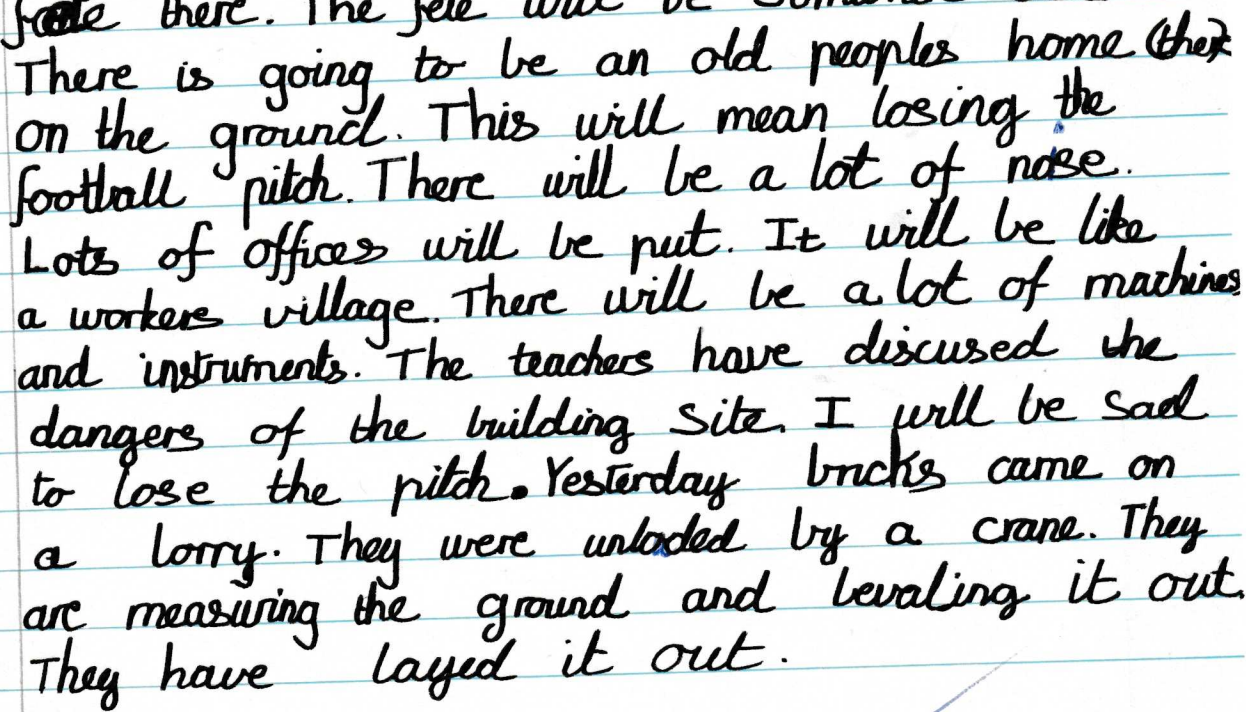 there. The fete will be
There is going to be an old peoples home (the)
on the ground. This will mean losing the
football pitch. There will be a lot of nose.
Lots of offices will be put. It will be like
a workers village. There will be a lot of machines
and instruments. The teachers have discused the
dangers of the building site. I will be sad
to lose the pitch. Yesterday bricks came on
a lorry. They were unloded by a crane. They
are measuring the ground and levaling it out.
They have layed it out.